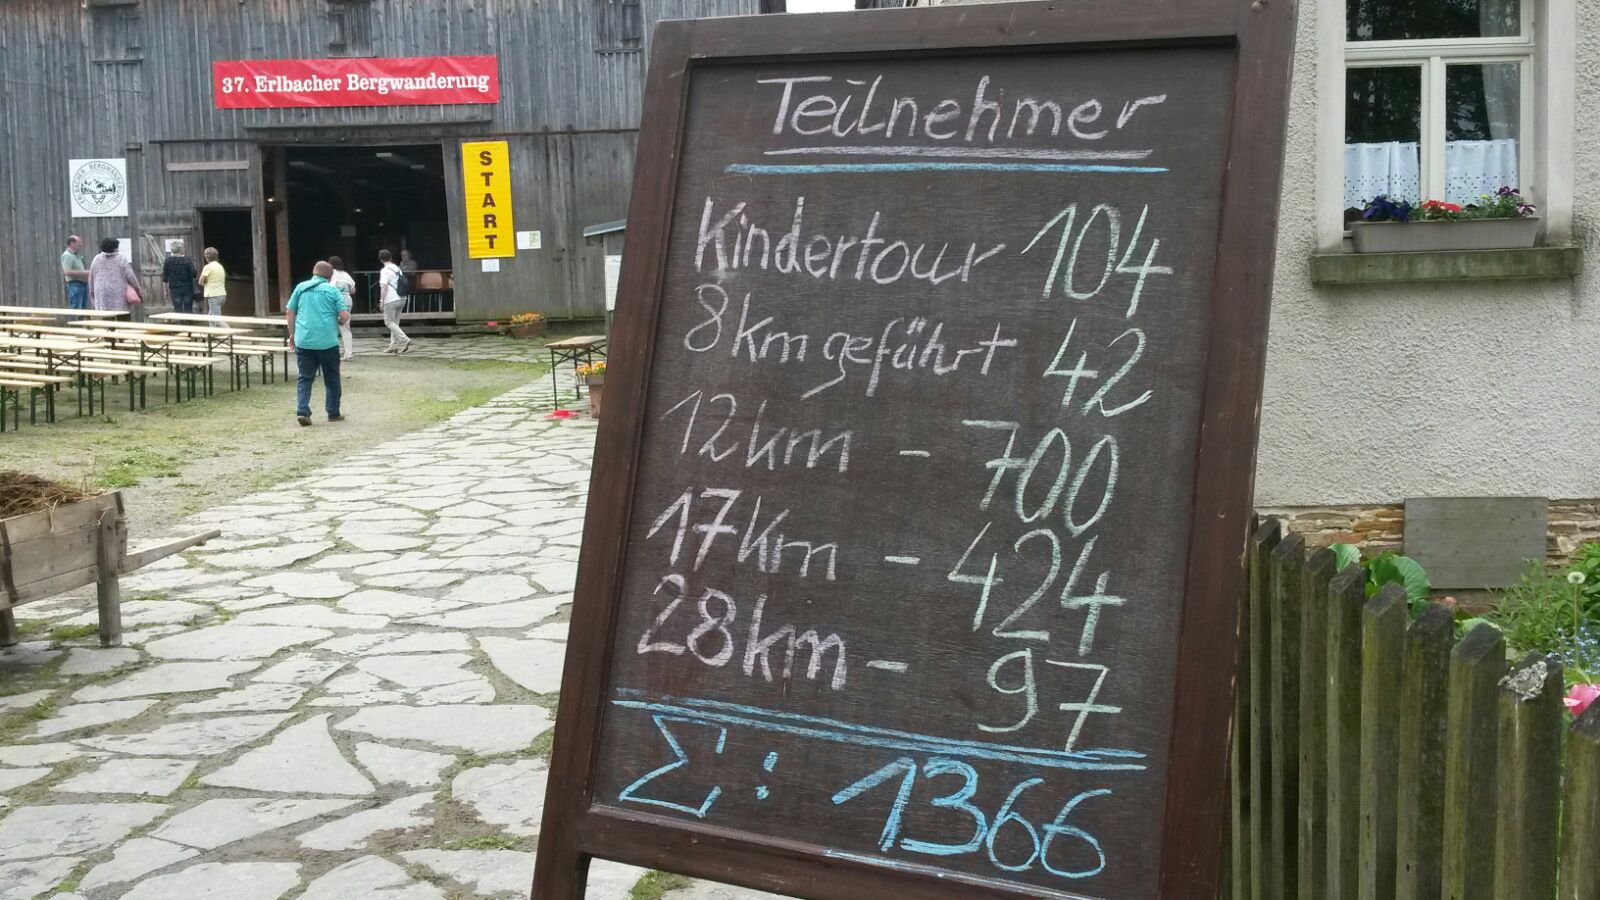 37. Erlbacher Bergwanderung
START
ERLBACHER BERGWANDERUNG
Teilnehmer
Kindertour 104
8km geführt 42
12km - 700
17km - 424
28km - 97
Σ: 1366